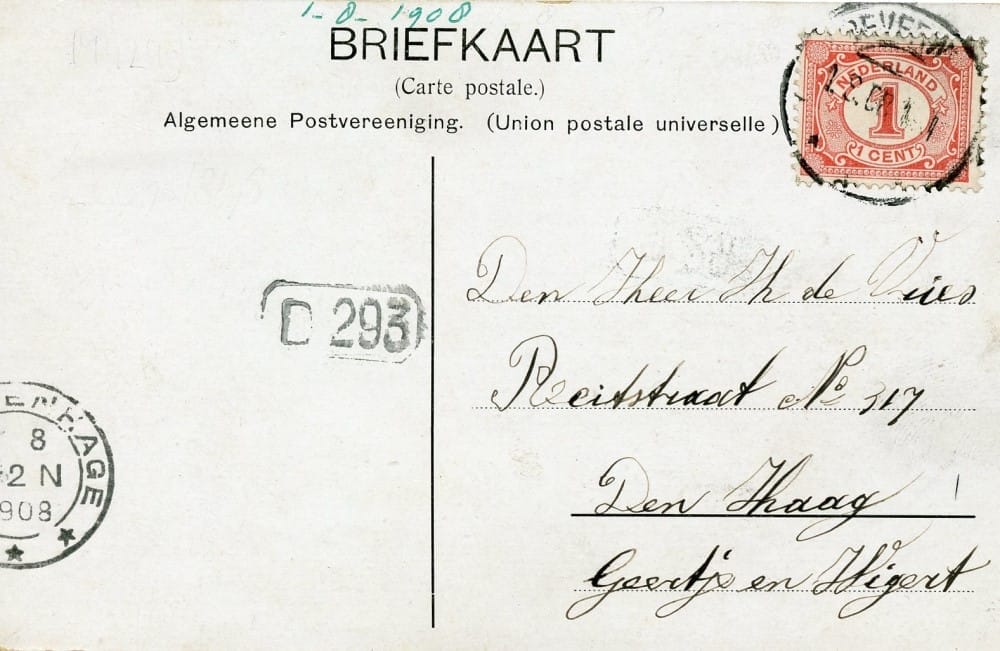 1-8-1908
BRIEFKAART
(Carte postale.)
Algemeene Postvereeniging. (Union postale universelle)
NEDERLAND
1
1 CENT
Den Heer Th de Vries
D 293
Reitstraat No 317
ENHAGE
8
2 N
908
Den Haag
Geertje en Wigert